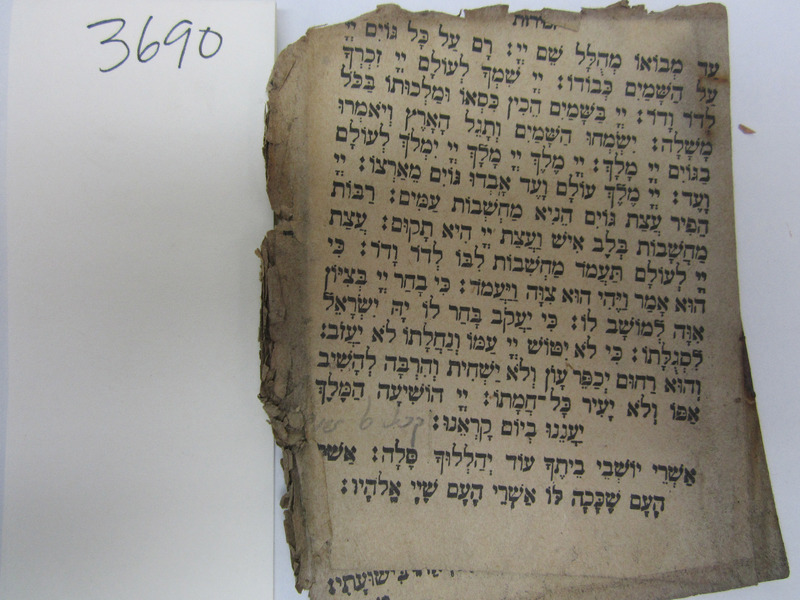 3690
זמירות
עד מְבוֹאוֹ מְהֻלָּל שֵׁם יְיָ: רָם עַל כָּל גּוֹיִם יְיָ
עַל הַשָּׁמַיִם כְּבוֹדוֹ: יְיָ שִׁמְךָ לְעוֹלָם יְיָ זִכְרְךָ
לְדוֹר וָדוֹר: יְיָ בַּשָּׁמַיִם הֵכִין כִּסְאוֹ וּמַלְכוּתוֹ בַּכֹּל
מָשָׁלָה: יִשְׂמְחוּ הַשָּׁמַיִם וְתָגֵל הָאָרֶץ וְיֹאמְרוּ
בַגּוֹיִם יְיָ מָלָךְ: יְיָ מֶלֶךְ יְיָ מָלָךְ יְיָ יִמְלֹךְ לְעוֹלָם
וָעֶד: יְיָ מֶלֶךְ עוֹלָם וָעֶד אָבְדוּ גוֹיִם מֵאַרְצוֹ: יְיָ
הֵפִיר עֲצַת גּוֹיִם הֵנִיא מַחְשְׁבוֹת עַמִּים: רַבּוֹת
מַחֲשָׁבוֹת בְּלֶב אִישׁ וַעֲצַת יְיָ הִיא תָקוּם: עֲצַת
יְיָ לְעוֹלָם תַּעֲמֹד מַחְשְׁבוֹת לִבּוֹ לְדוֹר וָדוֹר: כִּי
הוּא אָמַר וַיֶּהִי הוּא צִוָּה וַיַּעֲמֹד: כִּי בָחַר יְיָ בְּצִיּוֹן
אִוָּהּ לְמוֹשָׁב לוֹ: כִּי יַעֲקֹב בָּחַר לוֹ יָהּ יִשְׂרָאֵל
לִסְגֻלָּתוֹ: כִּי לֹא יִטּוֹשׁ יְיָ עַמּוֹ וְנַחֲלָתוֹ לֹא יַעֲזֹב:
וְהוּא רַחוּם יְכַפֵּר עָוֹן וְלֹא יַשְׁחִית וְהִרְבָּה לְהָשִׁיב
אַפּוֹ וְלֹא יָעִיר כָּל־חֲמָתוֹ: יְיָ הוֹשִׁיעָה הַמֶּלֶךְ
יַעֲנֵנוּ בְיוֹם קָרְאֵנוּ:
אַשְׁרֵי יוֹשְׁבֵי בֵיתֶךָ עוֹד יְהַלְלוּךָ סֶּלָה: אַשְׁרֵי
הָעָם שֶׁכָּכָה לּוֹ אַשְׁרֵי הָעָם שֶׁיְיָ אֱלֹהָיו:
בִּישׁוּעָתִי: